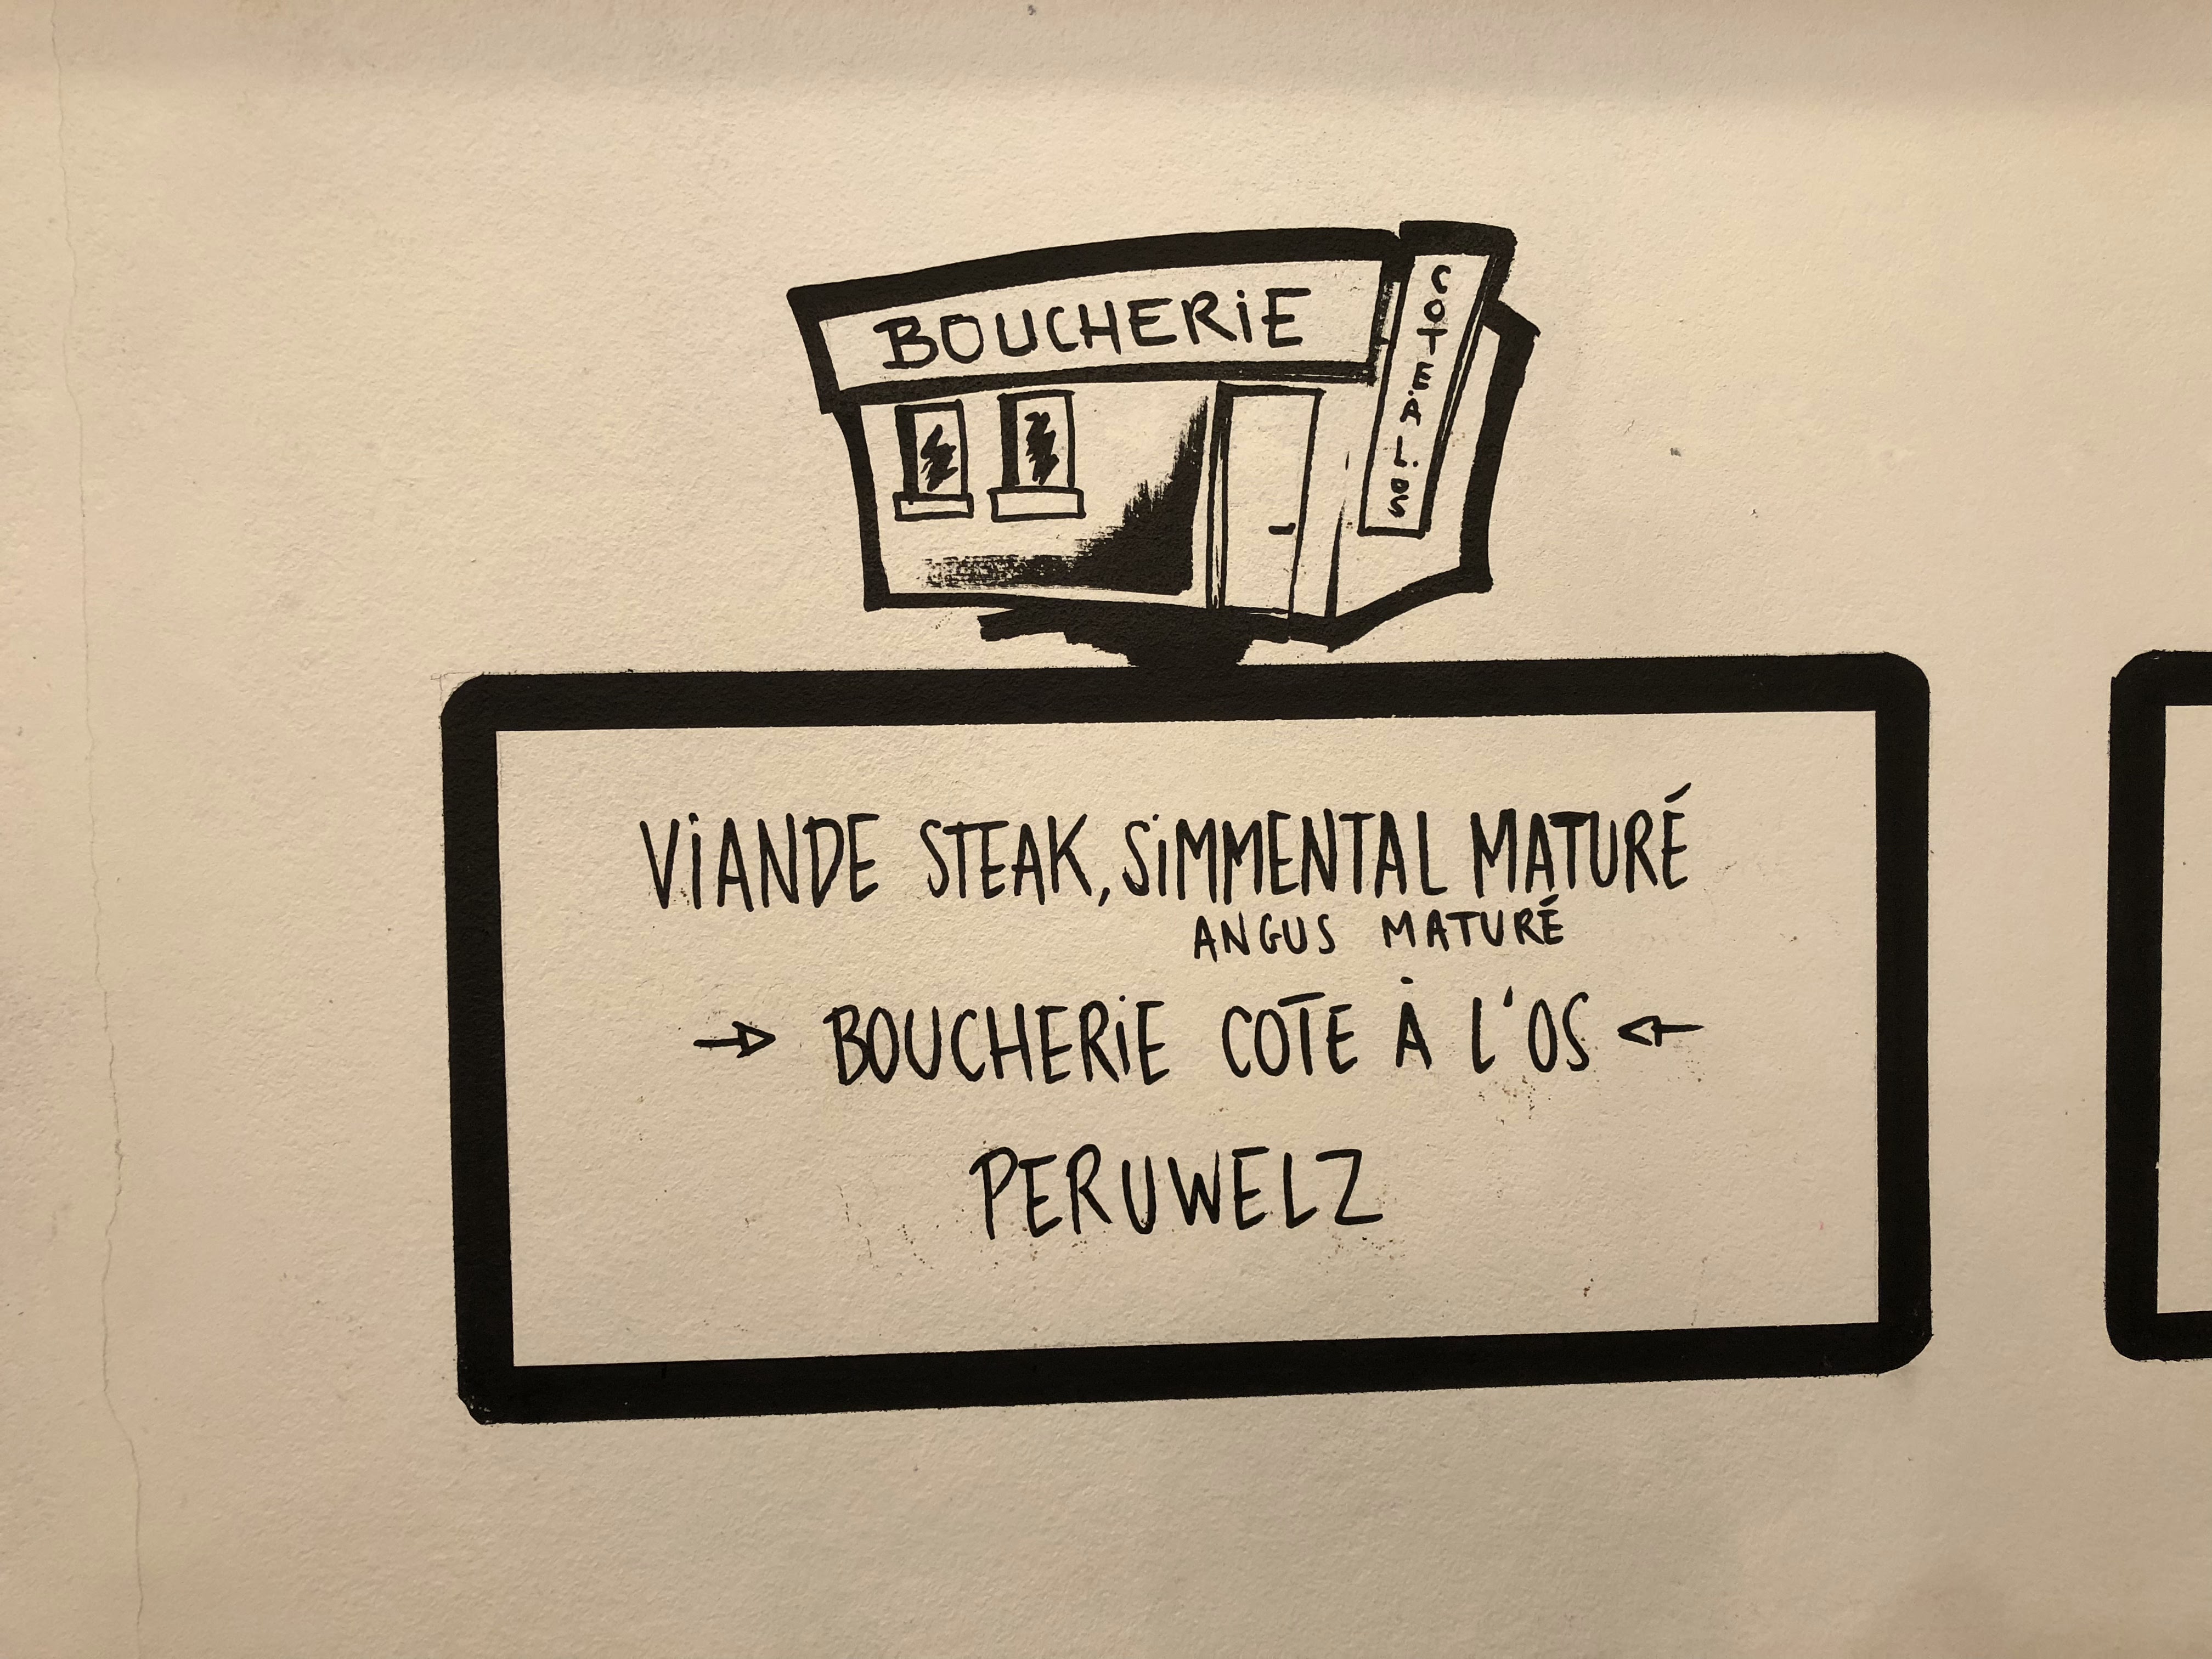 BOUCHERIE
COTE À L'OS
VIANDE STEAK, SIMMENTAL MATURÉ
ANGUS MATURÉ
→ BOUCHERIE COTE À L'OS ←
PERUWELZ